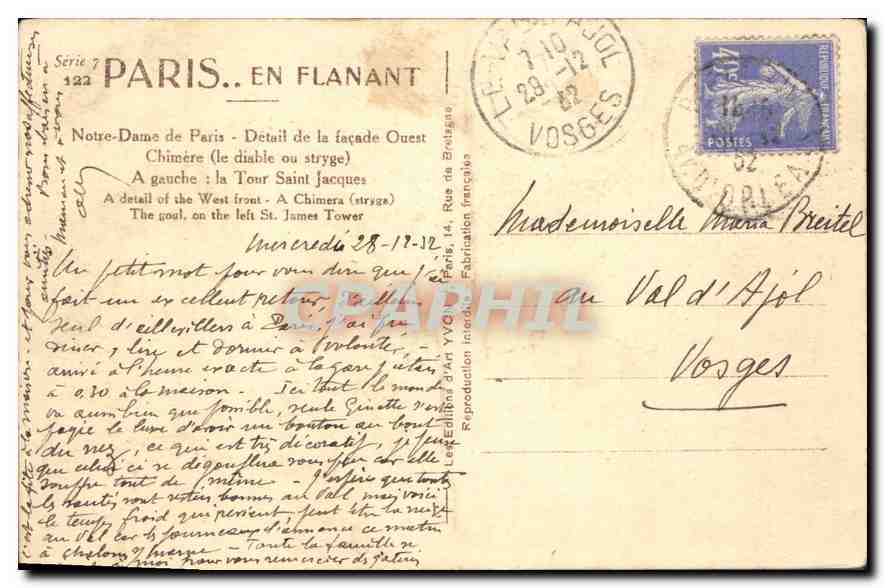 Série 7
122 PARIS.. EN FLANANT
Notre-Dame de Paris - Détail de la façade Ouest
Chimère (le diable ou stryge)
A gauche : la Tour Saint Jacques
A detail of the West front - A Chimera (stryge)
The goul, on the left St. James Tower
Mercredi 28-12-32
Un petit mot pour vous dire que j'ai
fait un excellent retour,
seul d' à Paris, j'ai pu
, lire et dormir à volonté, -
arrivé à l'heure exacte à la gare j'étais
à 0.30 à la maison. - Ici tout le monde
va aussi bien que possible, seule Ginette s'est
payée le luxe d'avoir un bouton au bout
du nez, ce qui est très décoratif, je pense
que celui ci se dégonflera sous peu car elle
souffre tout de même - J'espère que toutes
les santés sont restées bonnes au Val, mais voici
le temps froid qui revient peut être la neige
au Val car les journaux l'annonce ce matin
à Chalons s/ Marne - Toute la famille se
à moi pour vous remercier des gateries
c'est la fête à la maison - et pour vous
amitiés
Bons baisers à
maman et à vous
Les Editions d'Art YVON, Paris, 14, Rue de Bretagne
Reproduction interdite - Fabrication française
LE VAL D'AJOL
7 10
29 -12
32
VOSGES
REPUBLIQUE FRANÇAISE
40c
POSTES
32
AV. D'ORLEANS
Mademoiselle Maria Breitel
au Val d'Ajol
Vosges
CPARHIL